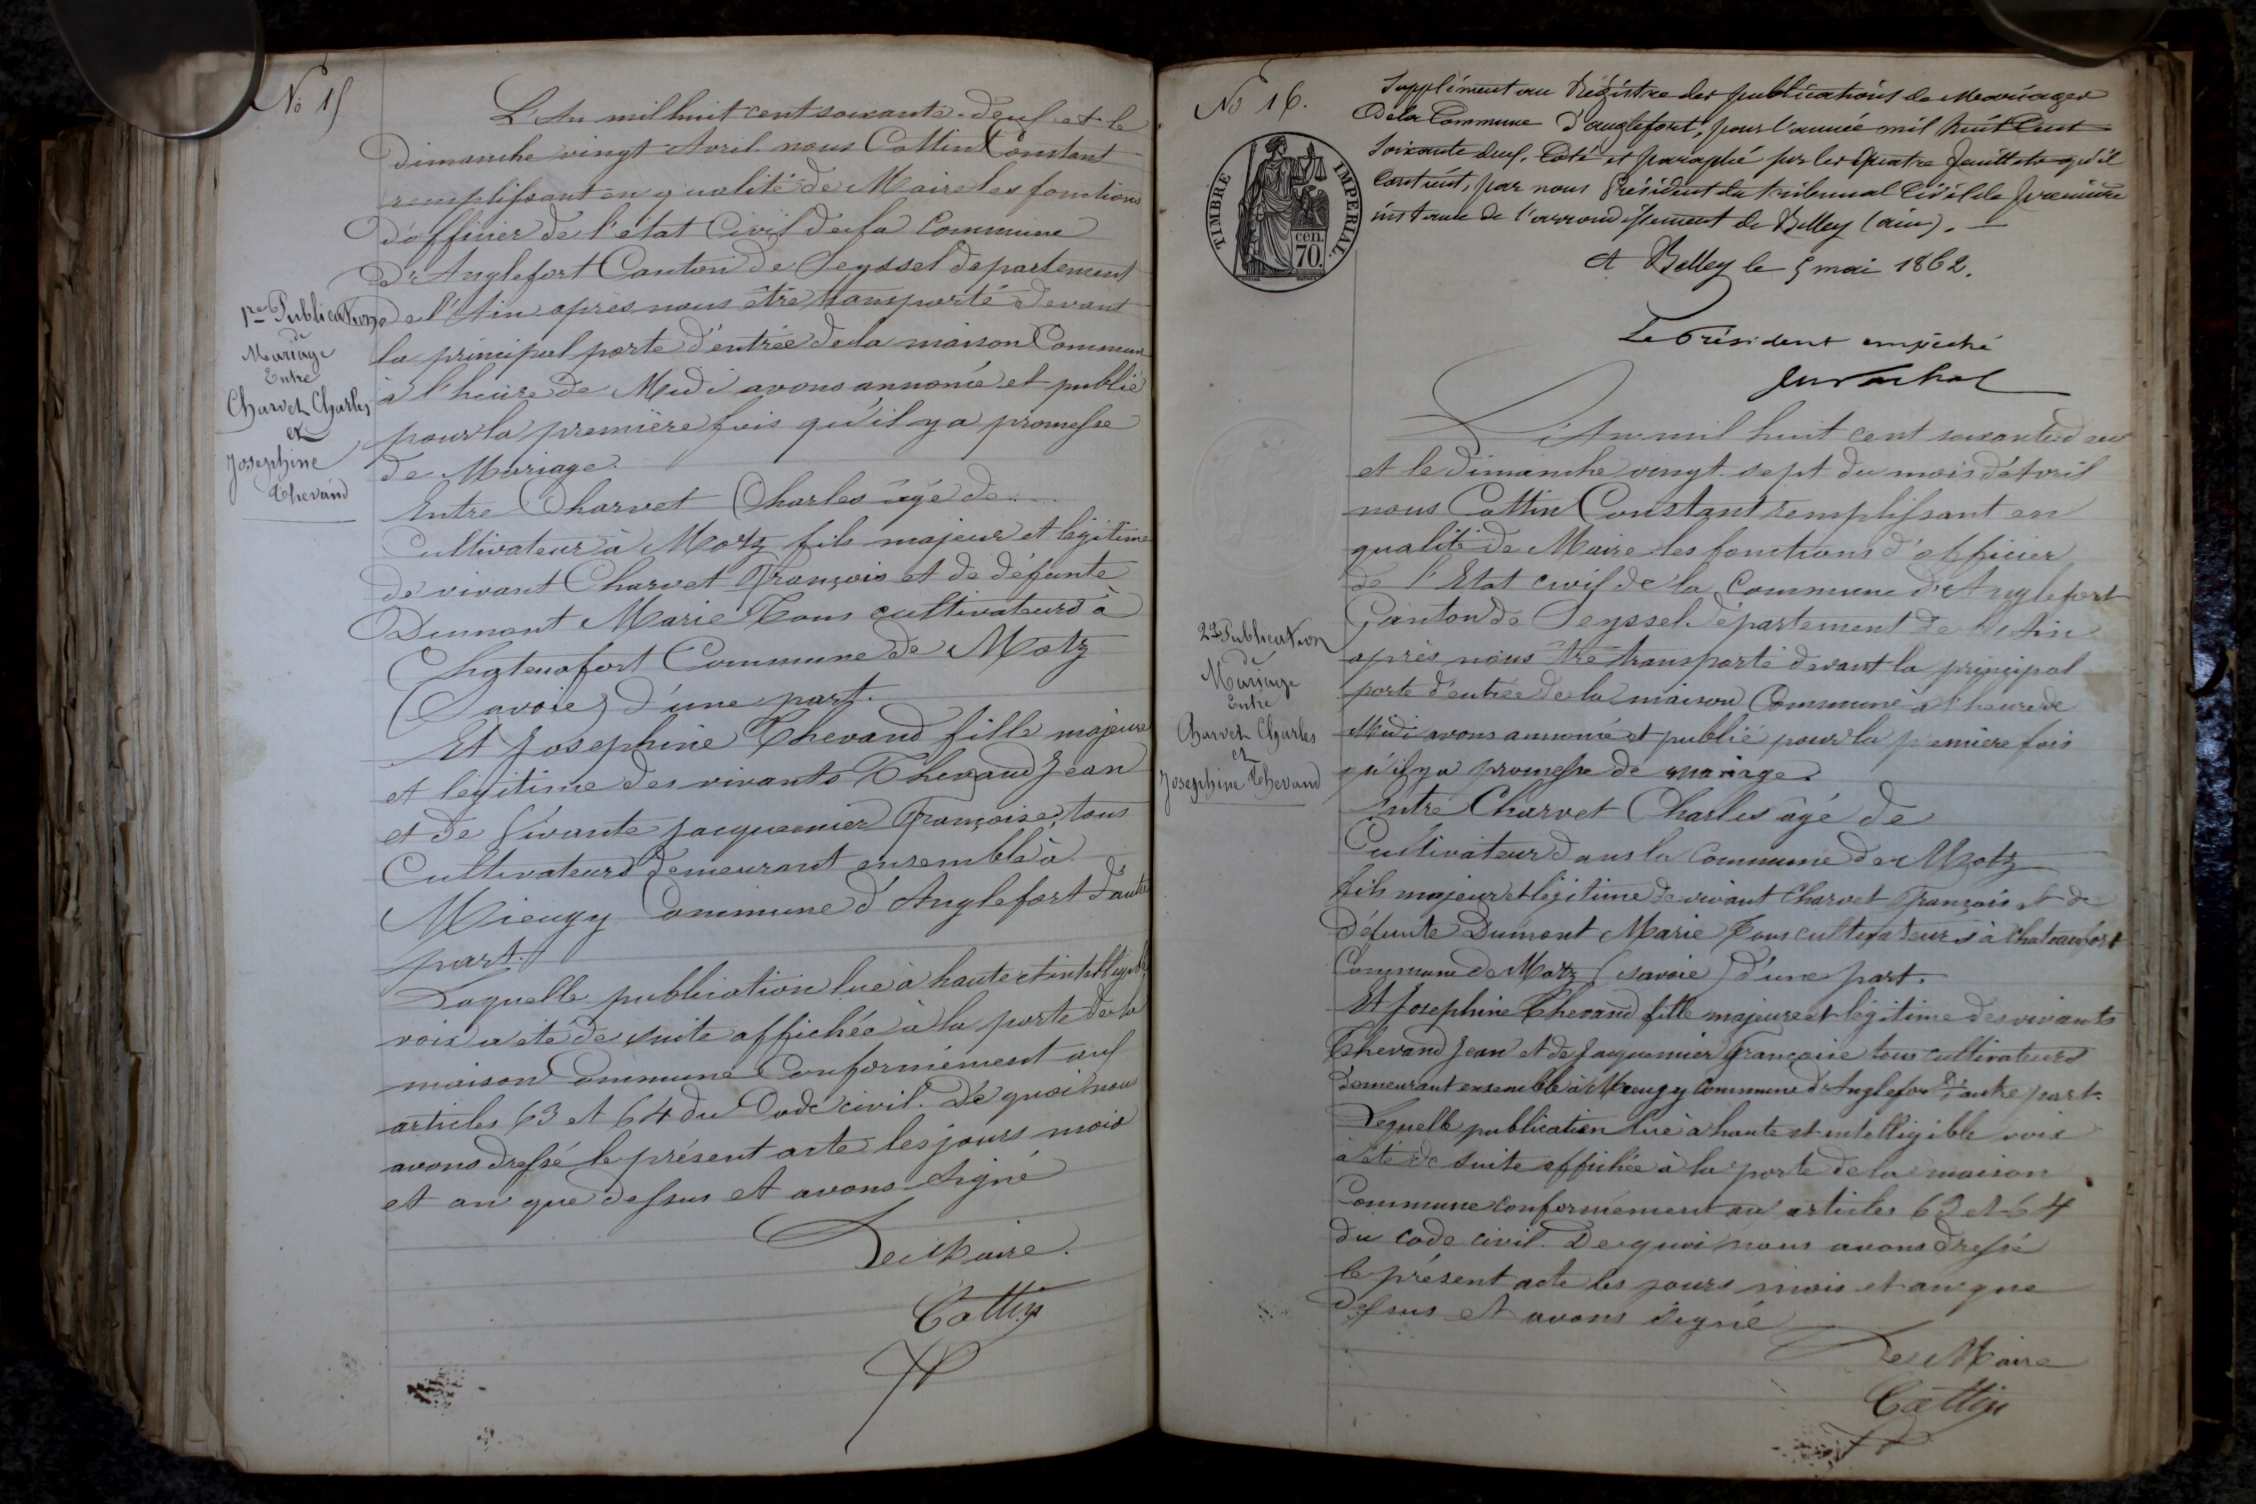 No 15
L'An mil huit cent soixante-deux et le
Dimanche vingt Avril nous Cottin Constant
remplissant en qualité de Maire les fonctions
d'officier de l'état Civil de la Commune
d'Anglefort Canton de Seyssel département
de l'Ain après nous être transporté devant
la principal porte d'entrée de la maison Commune
à l'heure de Midi avons annoncé et publié
pour la première fois qu'il y a promesse
de Mariage.
Entre Charvet Charles âgé de
Cultivateur à Motz fils majeur et légitime
de vivant Charvet François et de défunte
Dumont Marie Tous cultivateurs à
Chateaufort Commune de Motz
(Savoie) d'une part.
Et Josephine Thevand fille majeure
et légitime des vivants Thevand Jean
et de vivante Jacquemier Françoise, tous
Cultivateurs demeurant ensemble à
Mieugy Commune d'Anglefort d'autre
part.
Laquelle publication lue à haute et intelligible
voix a été de suite affichée à la porte de la
maison Commune Conformément aux
articles 63 et 64 du Code civil. De quoi nous
avons dressé le présent acte les jours mois
et an que dessus et avons signé
Le Maire.
Cottin
1re Publication
de
Mariage
Entre
Charvet Charles
et
Josephine
Thevand
No 16.
TIMBRE IMPERIAL
cen.
70.
Supplément au Régistre des publications de Mariages
De la Commune d'anglefort, pour l'année mil huit Cent
soixante deux. Coté et paraphé sur les quatre feuillets qu'il
Contient, par nous Président du tribunal Civil de première
instance de l'arrondissement de Belley (ain).
A Belley le 5 mai 1862.
Le Président empêché
L'An mil huit cent soixante deux
et le dimanche vingt sept du mois d'Avril
nous Cottin Constant remplissant en
qualité de Maire les fonctions d'officier
de l'Etat civil de la Commune d'Anglefort
Canton de Seyssel département de l'Ain
après nous être transporté devant la principal
porte d'entrée de la maison Commune à l'heure de
Midi avons annoncé et publié pour la première fois
qu'il y a promesse de mariage.
Entre Charvet Charles âgé de
Cultivateur dans la Commune de Motz
fils majeur et légitime de vivant Charvet François et de
défunte Dumont Marie Tous cultivateurs à Chateaufort
Commune de Motz (savoie) d'une part.
Et Josephine Thevand fille majeure et légitime des vivants
Thevand Jean et de Jacquemier Françoise tous cultivateurs
demeurant ensemble à Mieugy Commune d'Anglefort d'autre part.
Lequelle publication lue à haute et intelligible voix
a été de suite affichée à la porte de la maison
Commune conformément au articles 63 et 64
du code civil. De quoi nous avons dressé
le présent acte les jours mois et an que
dessus et avons signé
Le Maire
Cottin
2e Publication
de
Mariage
Entre
Charvet Charles
et
Josephine Thevand